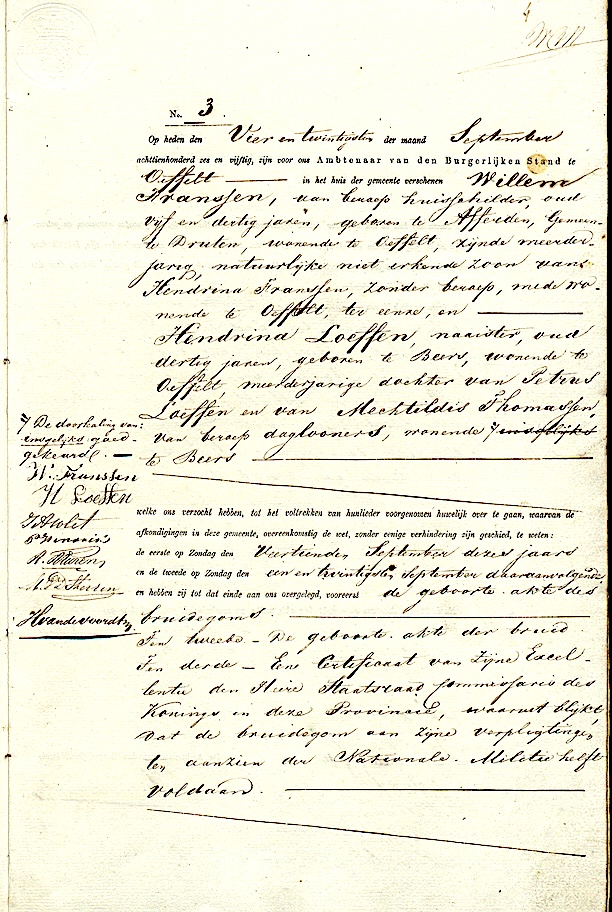 4
No. 3
Op heden den Vier en twintigsten der maand September
achttienhonderd zes en vijftig, zijn voor ons Ambtenaar van den Burgerlijken Stand te
Oeffelt in het huis der gemeente verschenen Willem
Franssen, van beroep huisschilder, oud
vijf en dertig jaren, geboren te Afferden, Gemeen-
te Druten, wonende te Oeffelt, zijnde meerder-
jarig, natuurlijke niet erkende zoon van
Hendrina Franssen, zonder beroep, mede wo-
nende te Oeffelt, ter eenre, en
Hendrina Loeffen, naaister, oud
dertig jaren, geboren te Beers, wonende te
Oeffelt, meerderjarige dochter van Petrus
Loeffen en van Mechtildis Thomassen,
van beroep daglooners, wonende insgelijks
te Beers
De doorhaling van:
insgelijks goed-
gekeurd. —
W. Franssen
H Loeffen
H vande voordt
welke ons verzocht hebben, tot het voltrekken van hunlieder voorgenomen huwelijk over te gaan, waarvan de
afkondigingen in deze gemeente, overeenkomstig de wet, zonder eenige verhindering zijn geschied, te weten:
de eerste op Zondag den Veertienden September dezes jaars
en de tweede op Zondag den een en twintigsten September daaraanvolgende
en hebben zij tot dat einde aan ons overgelegd, vooreerst de geboorte akte des
bruidegoms.
Ten tweede – De geboorte akte der bruid
Ten derde – Een Certificaat van Zijne Excel-
lentie den Heere Staatsraad Commissaris des
Konings in deze Provincie, waaruit blijkt,
dat de bruidegom aan zijne verpligtingen
ten aanzien der Nationale Militie heeft
voldaan.